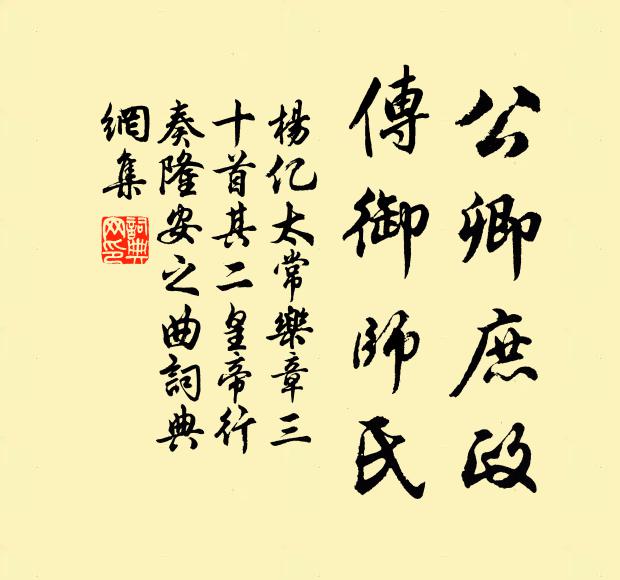 公卿庶政
傳御師氏
楊亿太常樂章三
十首其二皇帝行
奏隆安之曲詞典
網集
詞典
网印